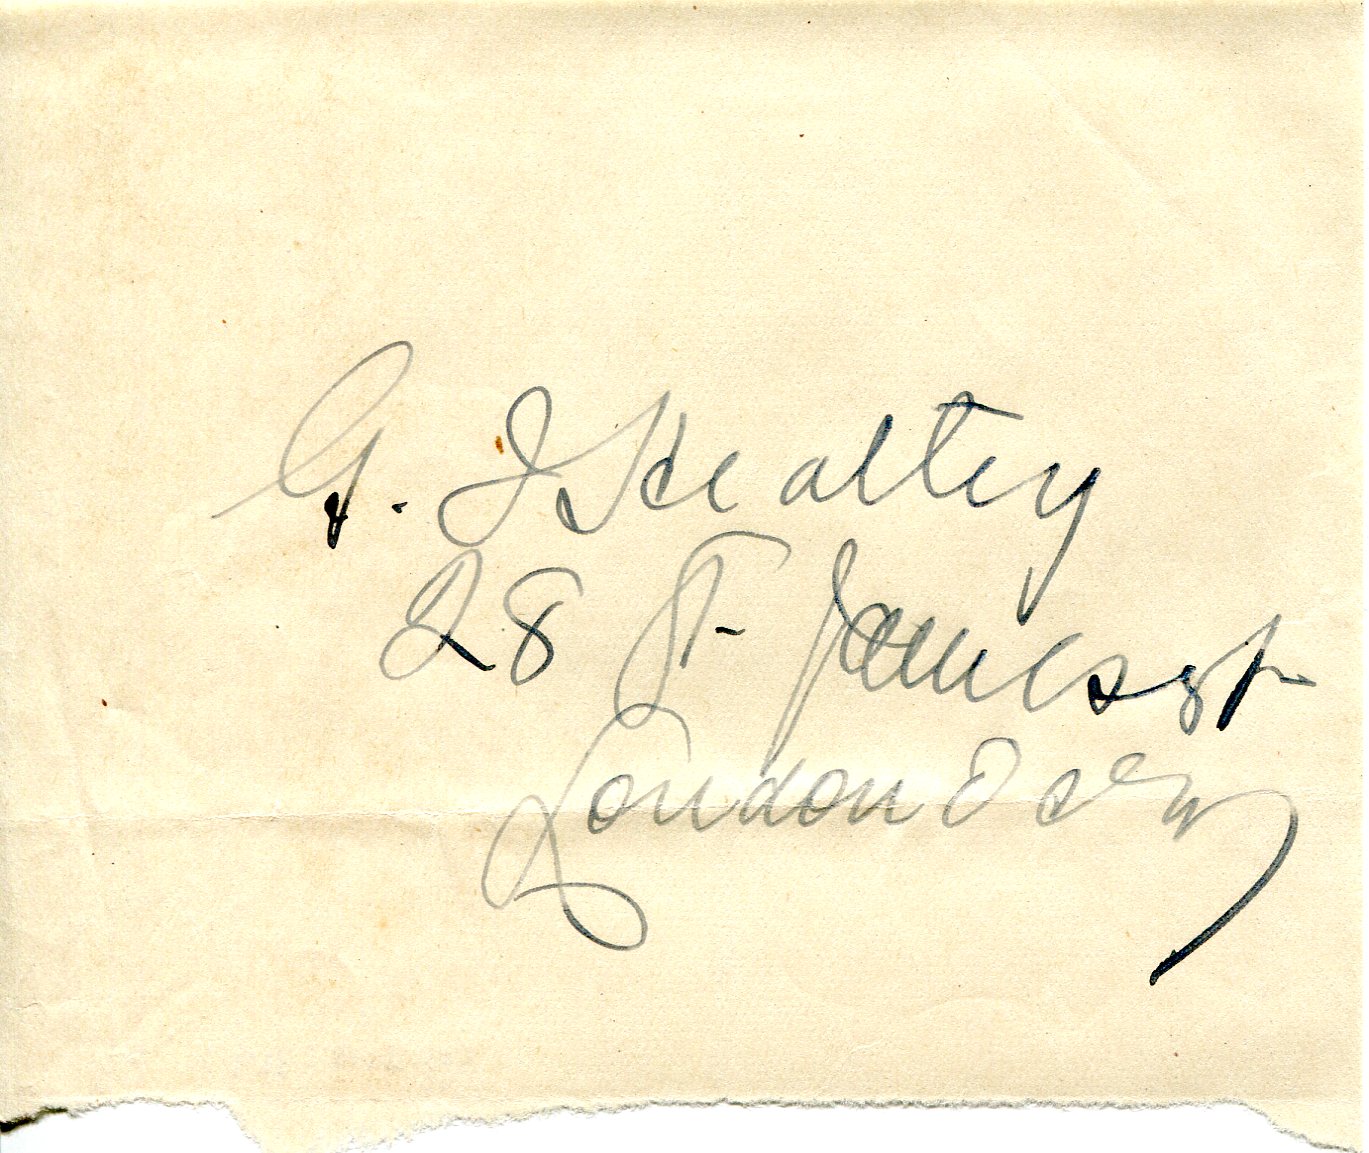 G. J Healtey
28 St- James St-
London Derry